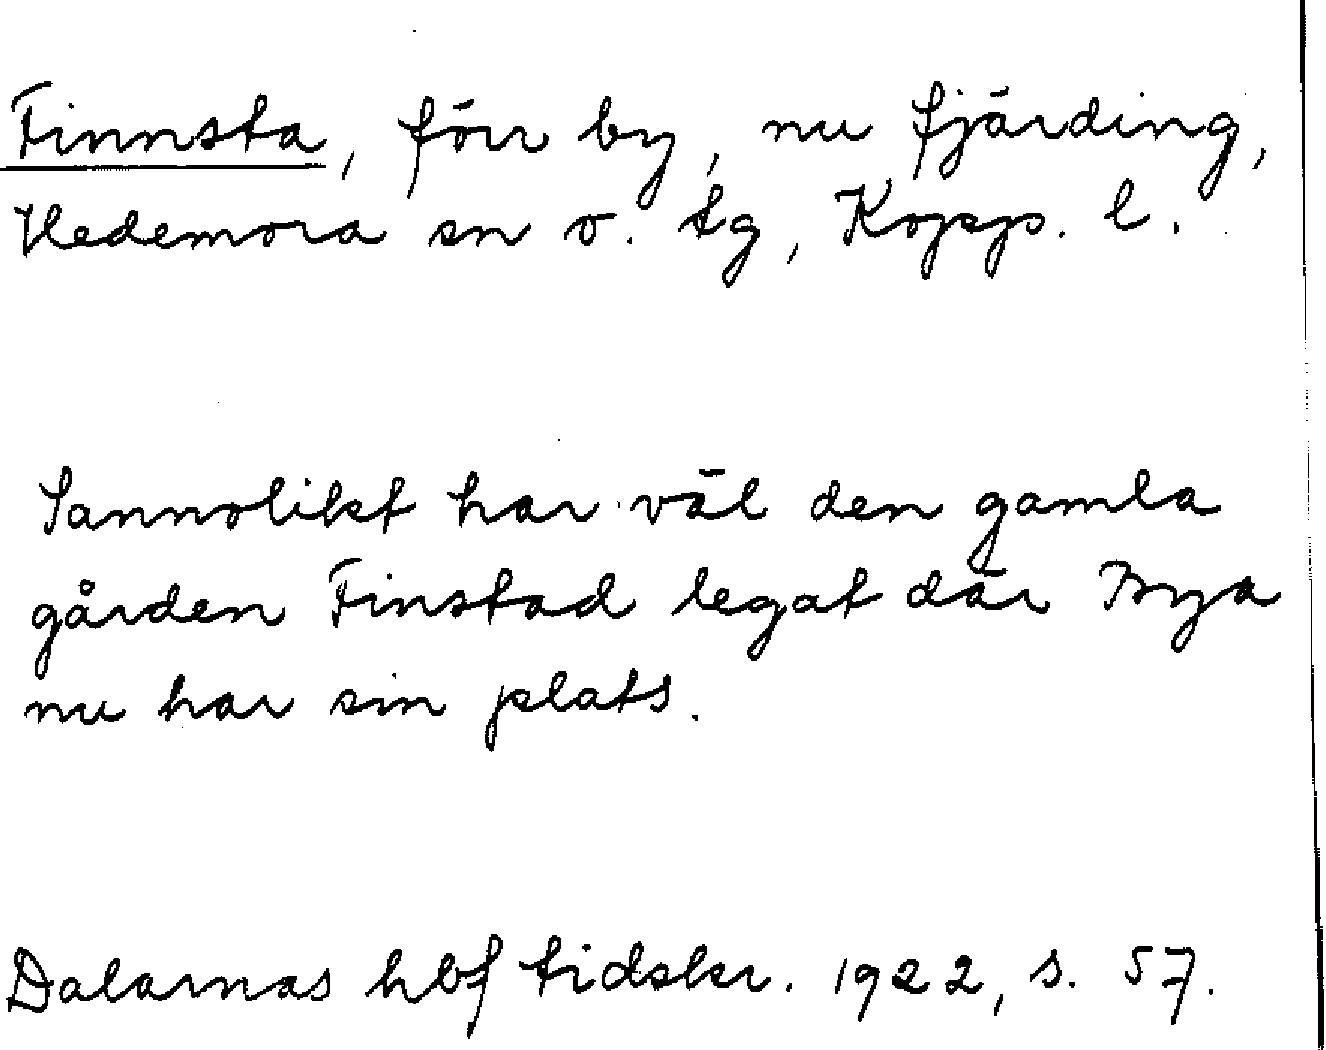 Finnsta, förr by, nu fjärding,
Hedemora sn o. tg, Kopp. l.
Sannolikt har väl den gamla
gården Finstad legat där Brya
nu har sin plats.
Dalarnas hbf tidskr. 1922, s. 57.